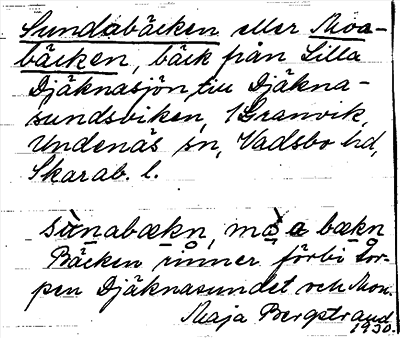 Sundabäcken eller Moa-
bäcken, bäck från Lilla
Djäknasjön till Djäkna-
sundsviken, i Granvik,
Undenäs sn, Vadsbo hd,
Skarab. l.
sùnabækn, bækn
Bäcken rinner förbi tor-
pen Djäknasundet och Mon.
Maja Bergstrand
1930.